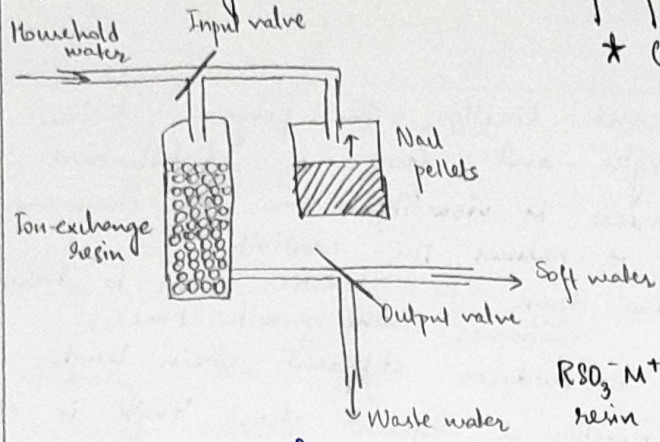 Household
water
Input valve
Nacl
pellets
Ion-exchange
resin
Soft water
Output valve
Waste water
RSO₃⁻M⁺
resin